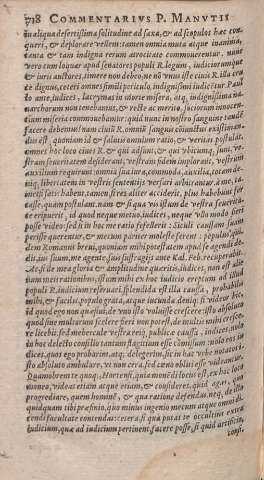 718 COMMENTARIVS P. MANVTII
in aliqua desertissima solitudine ad saxa, & ad scopulos hæc con-
queri, & deplorare vellem: tamen omnia muta atque inanima,
tanta & tam indigna rerum atrocitate commouerentur. nunc
vero cum loquar apud senatores populi R. legum, iudiciorumque
& iuris auctores, timere non debeo, ne nō vnus iste ciuis R. illa cru
te dignus, ceteri omnes simili periculo, indignissimi iudicetur. Paul
lo ante, iudices, lacrymas in morte misera, atq. indignissima na-
uarchorum non tenebamus, & recte ac merito, sociorum innocen-
tium miseria commouebamur: quid nunc in nostro sanguine tandē
facere debemus? nam ciuiū R. omniū sanguis coniunctus existiman-
dus est, quoniam id & salutis omnium ratio, & veritas postulat.
omnes hoc loco ciues R. & qui adsunt, & qui vbicumq. sunt, ve-
stram seueritatem desiderant, vestram fidem implorant, vestrum
auxilium requirunt: omnia sua iura, commoda, auxilia, totam de-
niq. libertatem in vestris sententijs versari arbitrantur. a me,
etsi satis habent, tamen, si res aliter acciderit, plus habebunt for-
tasse, quam postulant. nam & si qua vis istum de vestra seuerita-
te eripuerit, id quod neque metuo, iudices, neque vllo modo fieri
posse video: sed si in hoc me ratio fefellerit: Siculi caussam suam
perisse querentur, & mecum pariter moleste ferent: populus qui-
dem Romanus breui, quoniam mihi potestatem apud se agendi de-
dit, ius suum, me agente, suis suffragijs ante Kal. Feb. recuperabit.
Ac, si de mea gloria & amplitudine quæritis, iudices, non est alie-
num meis rationibus, istum mihi ex hoc iudicio ereptum ad illud
populi R. iudicium reseruari. splendida est illa caussa, probabilis
mihi, & facilis, populo grata, atque iucunda. deniq. si videor hic,
id quod ego non quæsiui, de vno isto voluisse crescere: isto absoluto,
quod sine multorum scelere fieri non potest, de multis mihi cresce-
re licebit. sed mehercule vestra, reiq. publicæ caussa, iudices, nolo
in hoc delecto consilio tantum flagitium esse cōmissum: nolo eos iu-
dices, quos ego probarim, atq. delegerim, sic in hac vrbe notatos
isto absoluto ambulare, vt non cera, sed cæno obliti esse videantur.
Quamobrem te quoq., Hortensi, si qua monēdi locus est, ex hoc loco
moneo, videas etiam atque etiam, & consideres, quid agas, quo
progrediare, quem hominē, & qua ratione defendas. neq. de illo
quidquam tibi præfinio, quo minus ingenio mecum atque omni di-
cendi facultate contendas: cetera, si qua putas te occultius extra
iudicium, quæ ad iudicium pertinent, facere posse, si quid artificio,
consi-